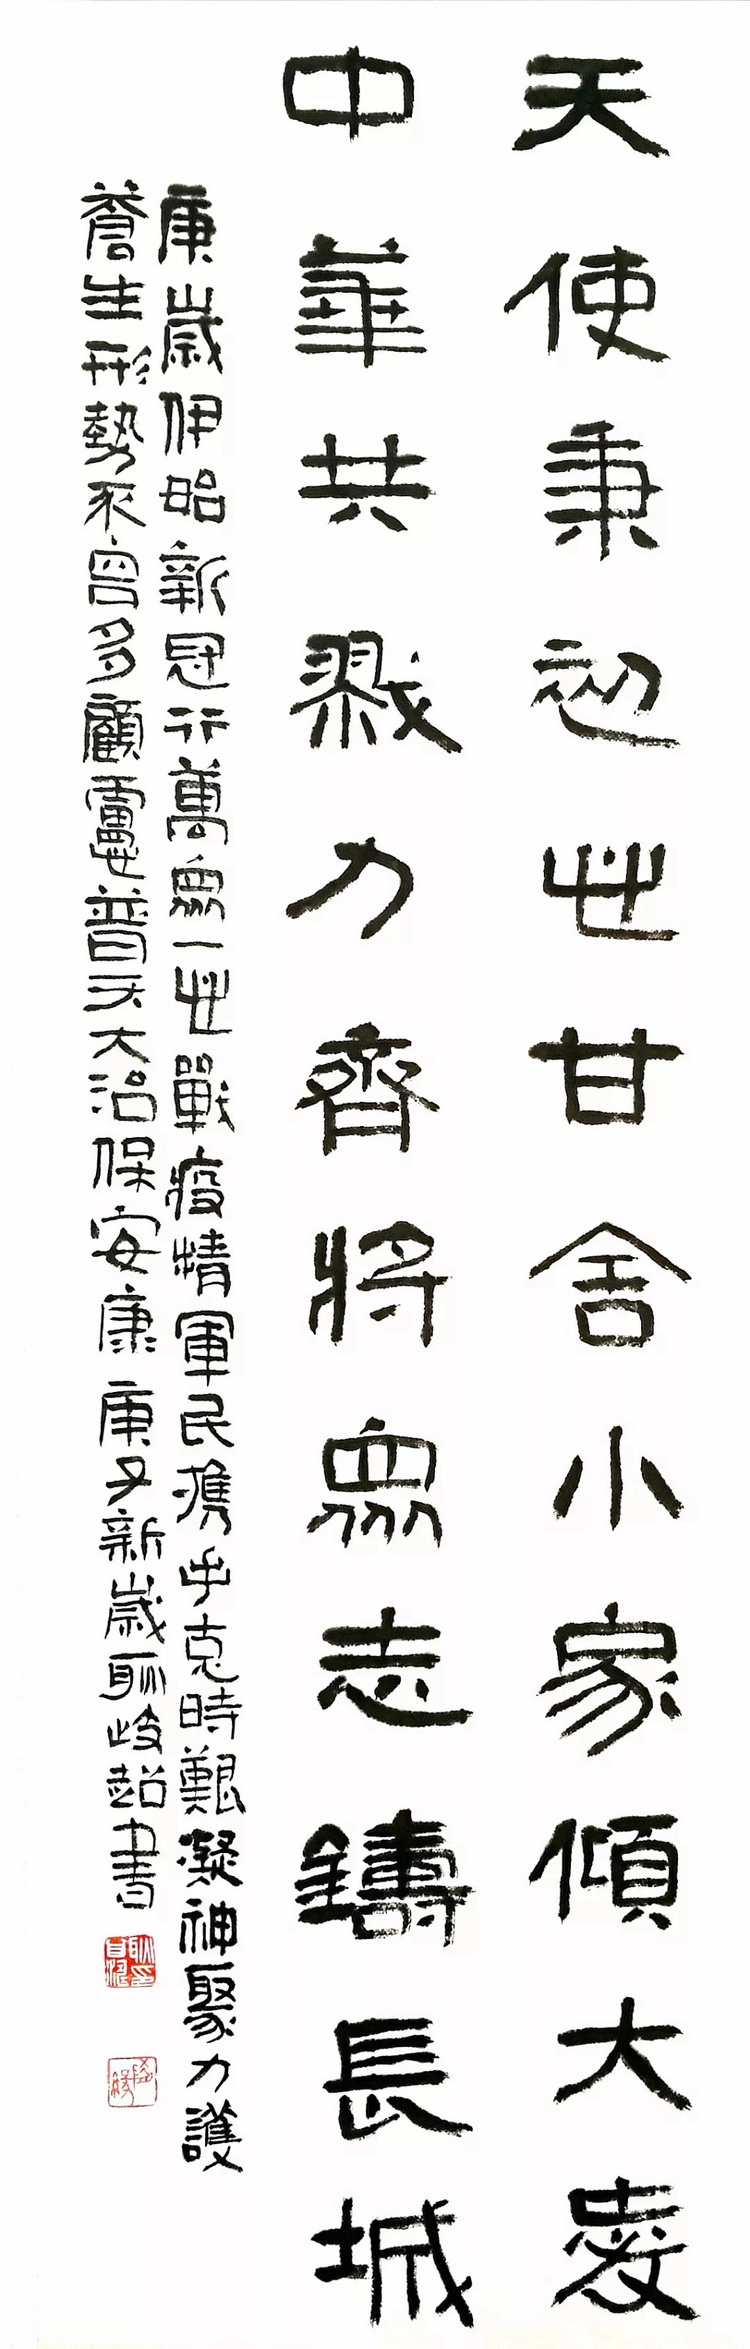 天使秉初心甘舍小家傾大愛
中華共戮力齊將眾志鑄長城
庚歲伊始新冠行萬眾一心戰疫情軍民携手克時艱凝神聚力護
蒼生形勢不容多顧慮普天大治保安康庚子新歲耿歧超書